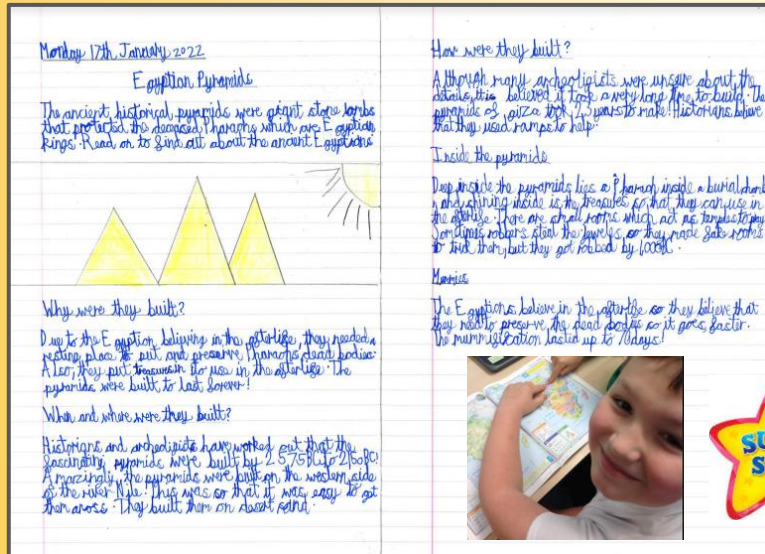 Monday 17th January 2022
Egyptian Pyramids
The ancient historical pyramids were giant stone tombs
that protected the deceased Pharaohs which are Egyptian
kings. Read on to find out about the ancient Egyptians
Why were they built?
Due to the Egyption beliving in the afterlife, they needed a
resting place to put and preserve Pharaohs dead bodies.
Also, they put treasures in to use in the afterlife. The
pyramids were built to last forever!
When and where were they built?
Historigns and archedigists have worked out that the
fascinating pyramids were built by 2575BC to 2150BC!
Amazingly, the pyramids were built on the western side
of the river Nile. This was so that it was easy to get
them aross. They built them on desert sand.
How were they built?
Although many archeoligists were unsure about the
details, this believed it took a very long time to build. The
pyramids of giza took 25 years to make! Historians believe
that they used ramps to help.
Inside the pyramids
Deep inside the pyramids lies a Pharaoh inside a burial
and shining inside is the treasures so that they can use in
the afterlife. There are small rooms which act as temples to pray
Somtimes robbers steal the jewels, so they made fake rooms
to trick them, but they got robbed by 1,000BC.
Mummies
The Egyptions believe in the afterlife so they believe that
they need to preserve the dead bodies so it goes faster.
The mummification lasted up to 70 days!